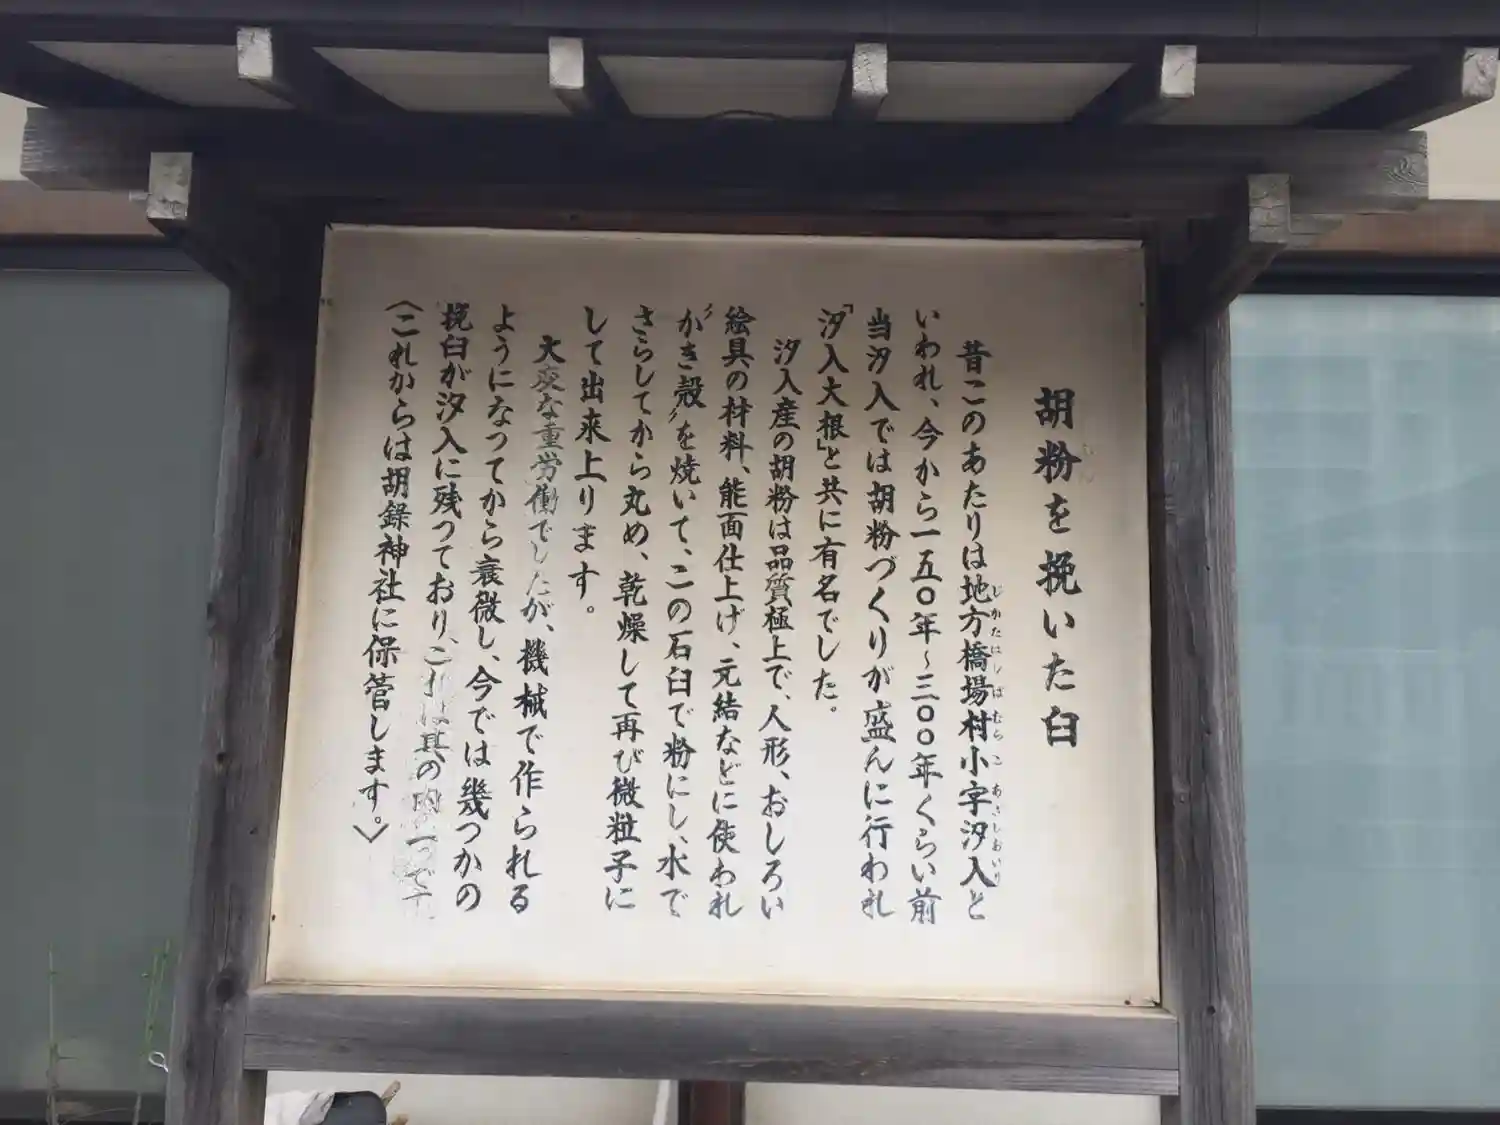 胡粉を挽いた臼
昔このあたりは地方橋場村小字汐入と
いわれ、今から一五〇年～三〇〇年くらい前
当汐入では胡粉づくりが盛んに行われ
「汐入大根」と共に有名でした。
汐入産の胡粉は品質極上で、人形、おしろい
絵具の材料、能面仕上げ、元結などに使われ
〃かき殻〃を焼いて、この石臼で粉にし、水で
さらしてから丸め、乾燥して再び微粒子に
して出来上ります。
大変な重労働でしたが、機械で作られる
ようになってから衰微し、今では幾つかの
挽臼が汐入に残っており、これは其の内の一つです
〈これからは胡録神社に保管します。〉